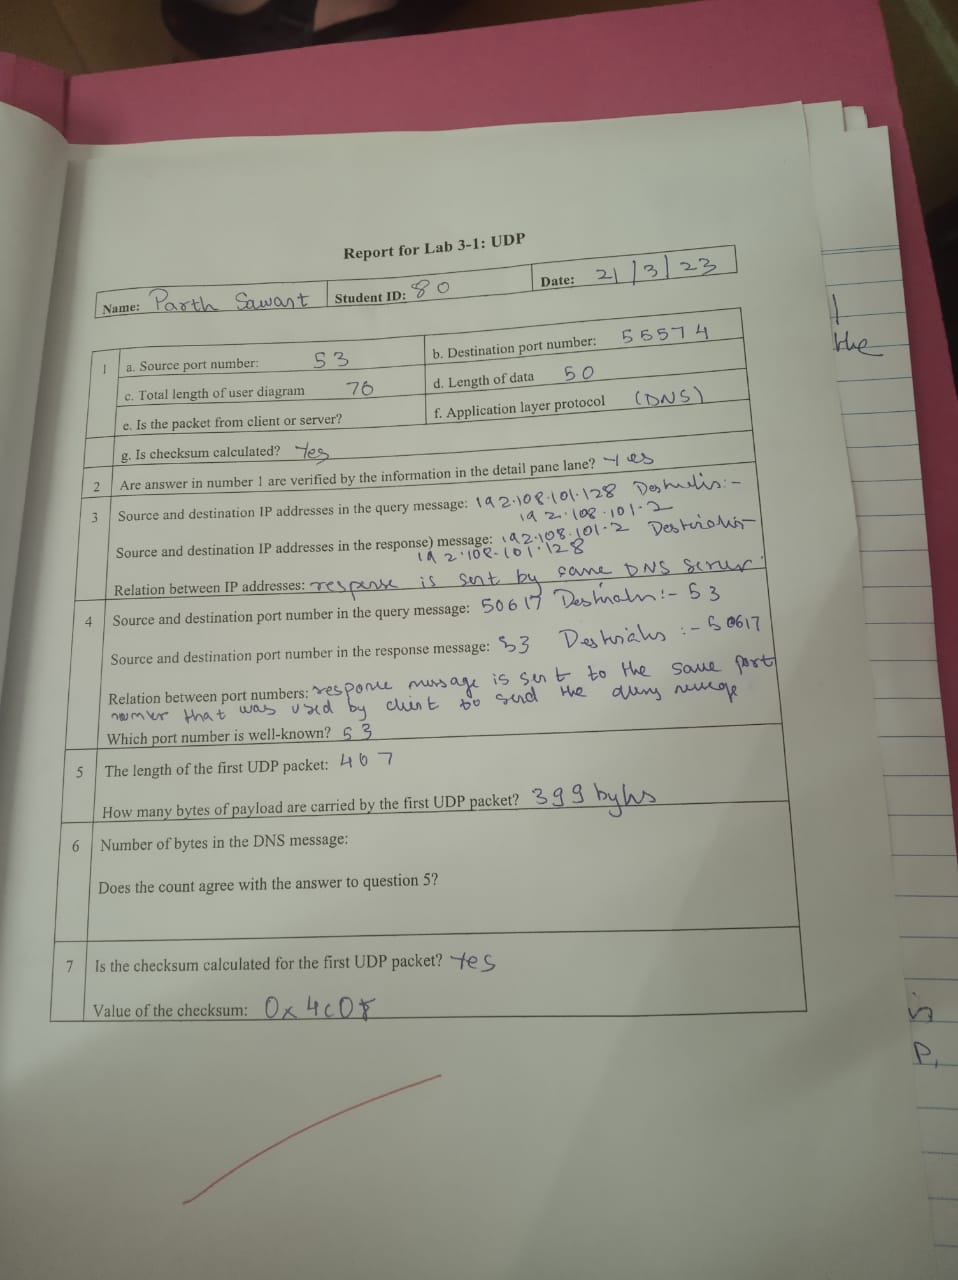 Report for Lab 3-1: UDP
Name: Parth Sawant Student ID: 80 Date: 21/3/23
1 a. Source port number: 53 b. Destination port number: 55574
c. Total length of user diagram 76 d. Length of data 50
e. Is the packet from client or server? f. Application layer protocol (DNS)
g. Is checksum calculated? Yes
2 Are answer in number 1 are verified by the information in the detail pane lane? Yes
3 Source and destination IP addresses in the query message: 192.108.101.128
192.108.101.2
Source and destination IP addresses in the response) message: 192.108.101.2
192.108.101.128
Relation between IP addresses: response is sent by same DNS server
4 Source and destination port number in the query message: 50617 :- 53
Source and destination port number in the response message: 53 :- 50617
Relation between port numbers: response message is sent to the same port
number that was used by client to send the
Which port number is well-known? 53
5 The length of the first UDP packet: 407
How many bytes of payload are carried by the first UDP packet? 399
6 Number of bytes in the DNS message:
Does the count agree with the answer to question 5?
7 Is the checksum calculated for the first UDP packet? Yes
Value of the checksum:
the